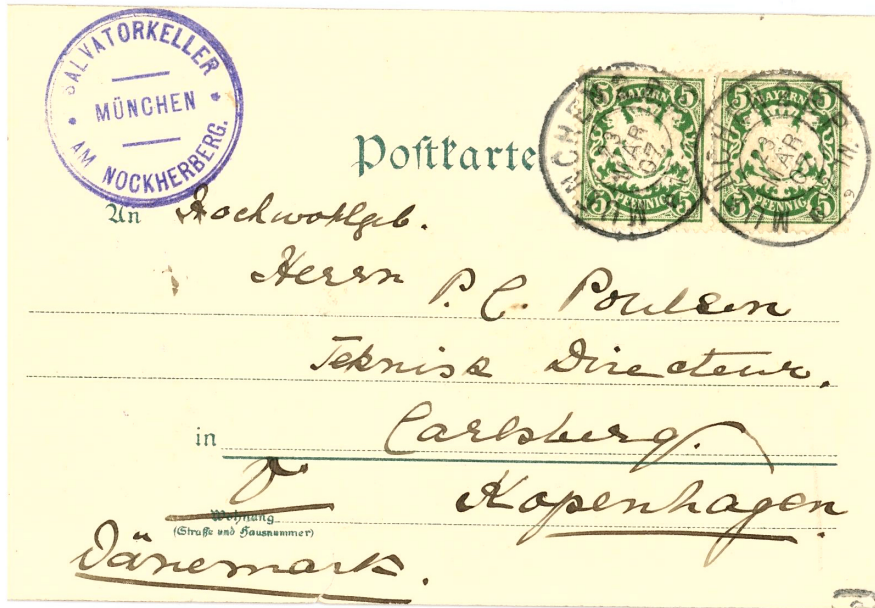 SALVATORKELLER
MÜNCHEN
AM NOCKHERBERG.
Postkarte
5 BAYERN 5
5 PFENNIG 5
5 BAYERN 5
5 PFENNIG 5
MÜNCHEN
MAR
MÜNCHEN
MAR
An Hochwohlgeb.
Herrn P. C. Poulsen
Teknisk Directeur.
in Carlsberg.
V Kopenhagen
Wohnung
(Straße und Hausnummer)
Dänemark.